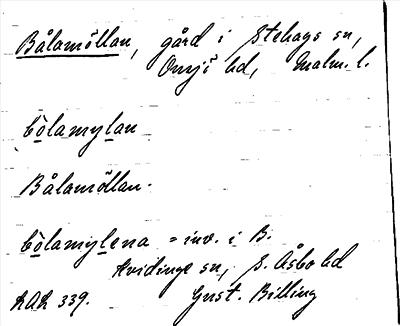 Bålamöllan, gård i Stehags sn,
Onsjö hd, Malm. l.
bòlamylan
Bålamöllan.
bòlamylena = inv. i B.
Hvidinge sn, S. Åsbo hd
AAK 339. Gust. Billing